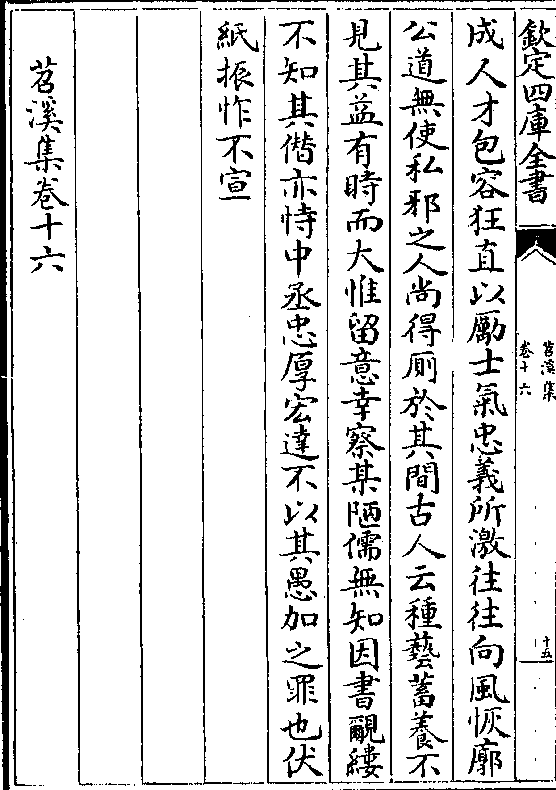 欽定四庫全書
苕溪集
卷十六
十五
成人才包容狂直以勵士氣忠義所激往往向風恢廓
公道無使私邪之人尚得厠於其間古人云種藝蓄養不
見其益有時而大惟留意幸察某陋儒無知因書覼縷
不知其僭亦恃中丞忠厚宏達不以其愚加之罪也伏
紙振怍不宣
苕溪集卷十六